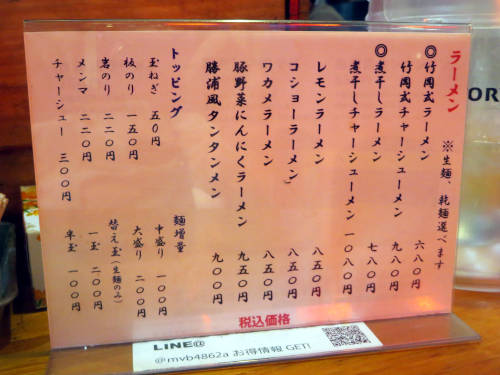 ラーメン
※生麺、乾麺選べます
◎竹岡式ラーメン 六八〇円
竹岡式チャーシューメン 九八〇円
◎煮干しラーメン 七八〇円
煮干しチャーシューメン 一〇八〇円
レモンラーメン 八五〇円
コショーラーメン 八五〇円
ワカメラーメン 八五〇円
豚野菜にんにくラーメン 九五〇円
勝浦風タンタンメン 九〇〇円
トッピング
玉ねぎ 五〇円
板のり 一五〇円
岩のり 二二〇円
メンマ 二二〇円
チャーシュー 三〇〇円
麺増量
中盛り 一〇〇円
大盛り 二〇〇円
替え玉(生麺のみ)
一玉 二〇〇円
半玉 一〇〇円
税込価格
LINE@
@mvb4862a お得情報 GET!
OR